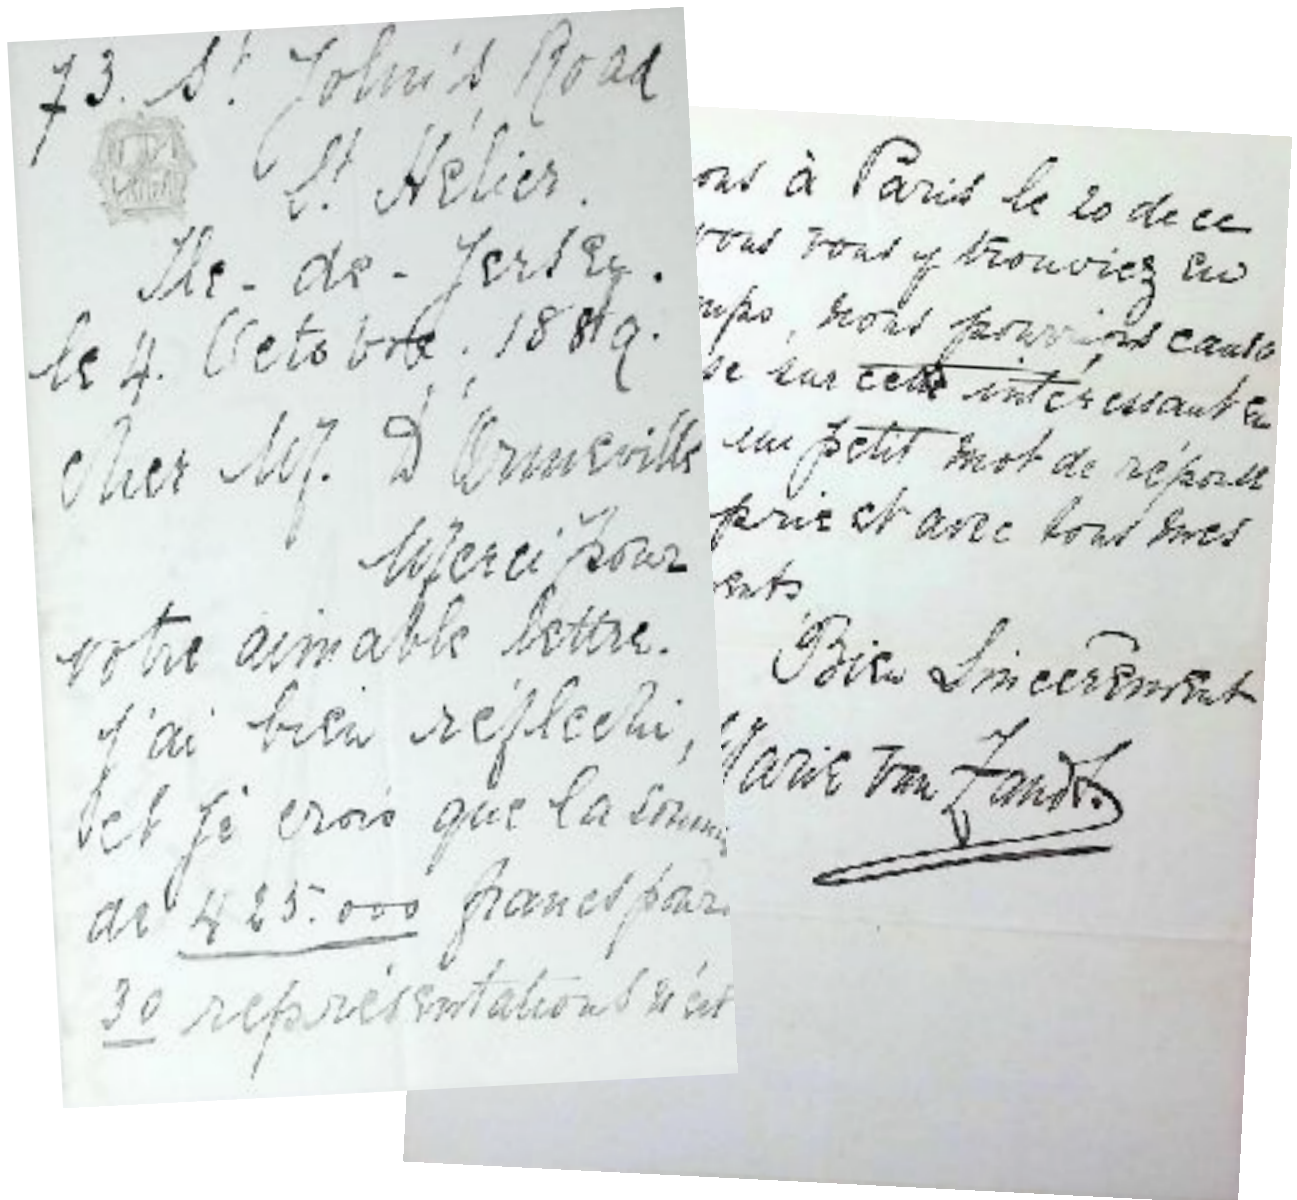 73. St. John's Road
St. Hélier.
Ile-de-Jersey.
le 4. Octobre. 1889.
Cher Mr. D'Ormeville
Merci pour
votre aimable lettre.
J'ai bien réflechi,
et je crois que la somme
de 425.000 francs pour
30 représentations n'est
ons à Paris le 20 de ce
vous vous y trouviez en
mps, nous pourrions cause
se sur cette intéressant en
un petit mot de réponse
prie et avec tous mes
ents
Bien Sincerement
Marie van Zandt.